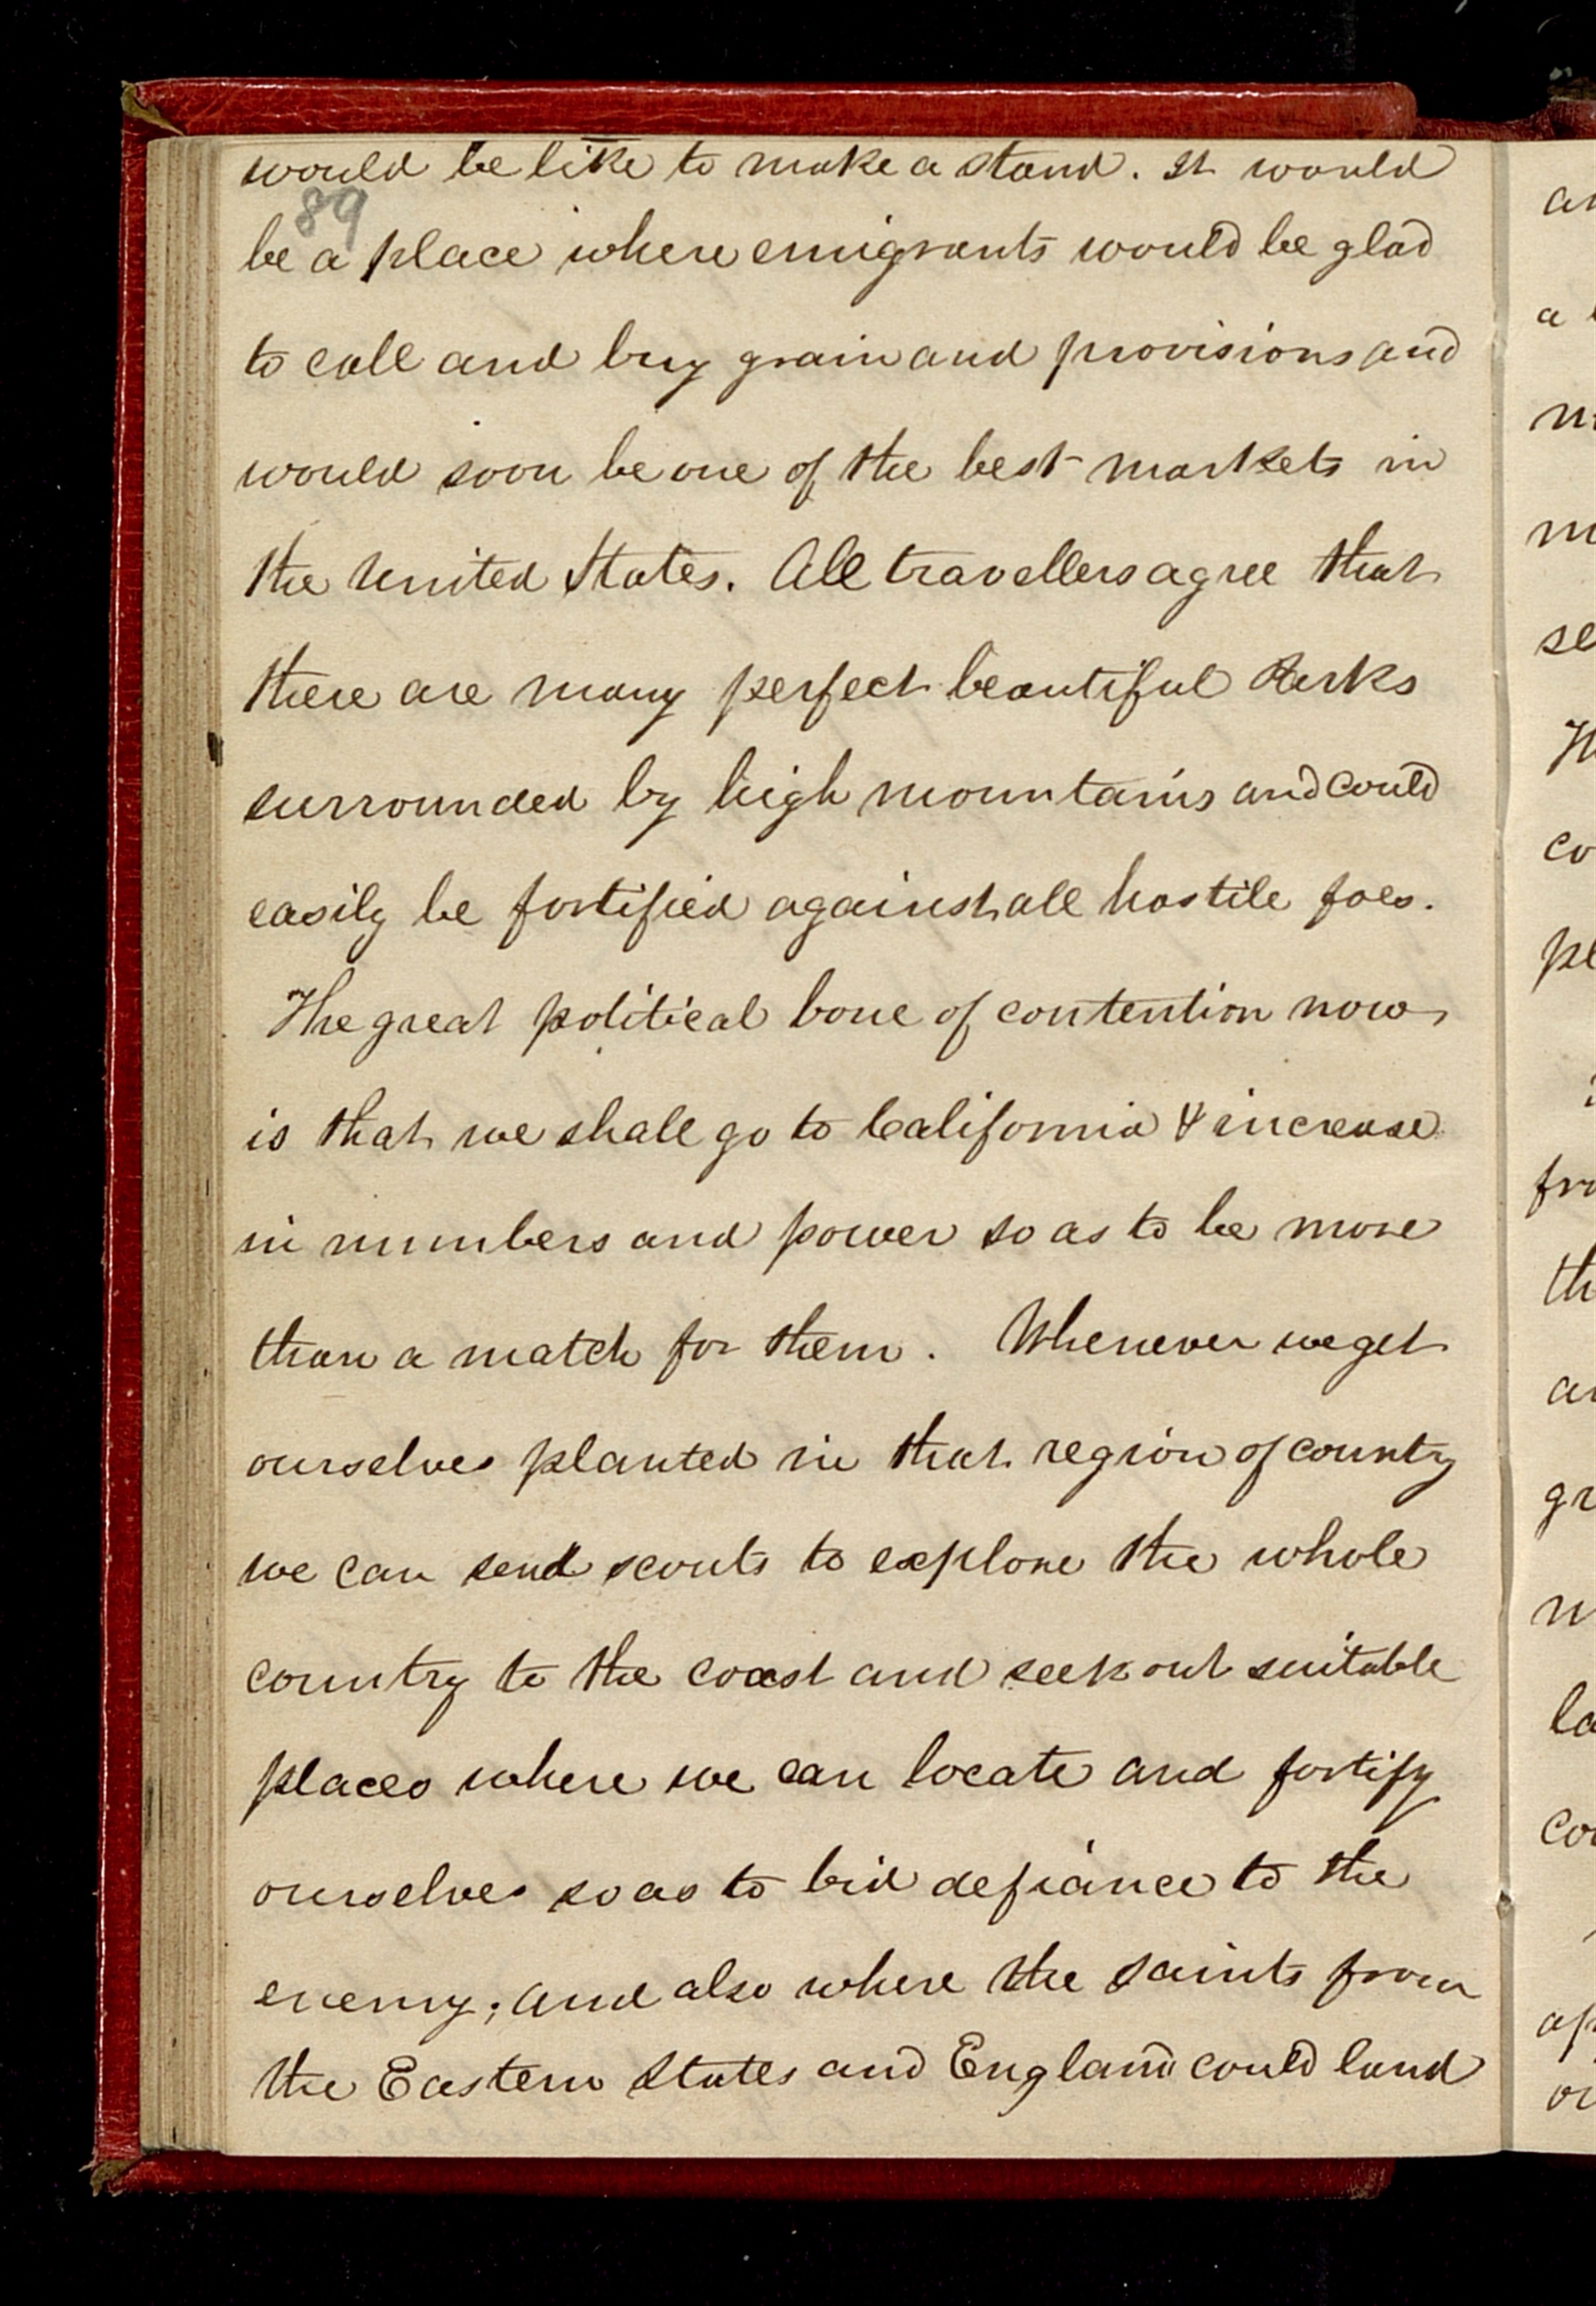 would be like to make a stand. It would
89
be a place where emigrants would be glad
to call and buy grain and provisions and
would soon be one of the best markets in
the United States. All travellers agree that
there are many perfect beautiful Parks
surrounded by high mountains and could
easily be fortified against all hostile foes.
The great political bone of contention now
is that we shall go to California & increase
in numbers and power so as to be more
than a match for them. Whenever we get
ourselves planted in that region of country
we can send scouts to explore the whole
country to the coast and seek out suitable
places where we can locate and fortify
ourselves so as to bid defiance to the
enemy; and also where the saints from
the Eastern States and England could land